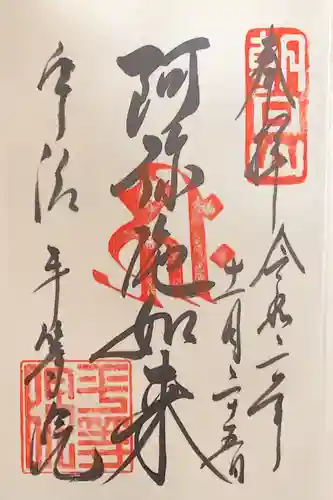 奉拝
令和二年
十一月二十五日
阿弥陀如来
宇治 平等院
朝日山